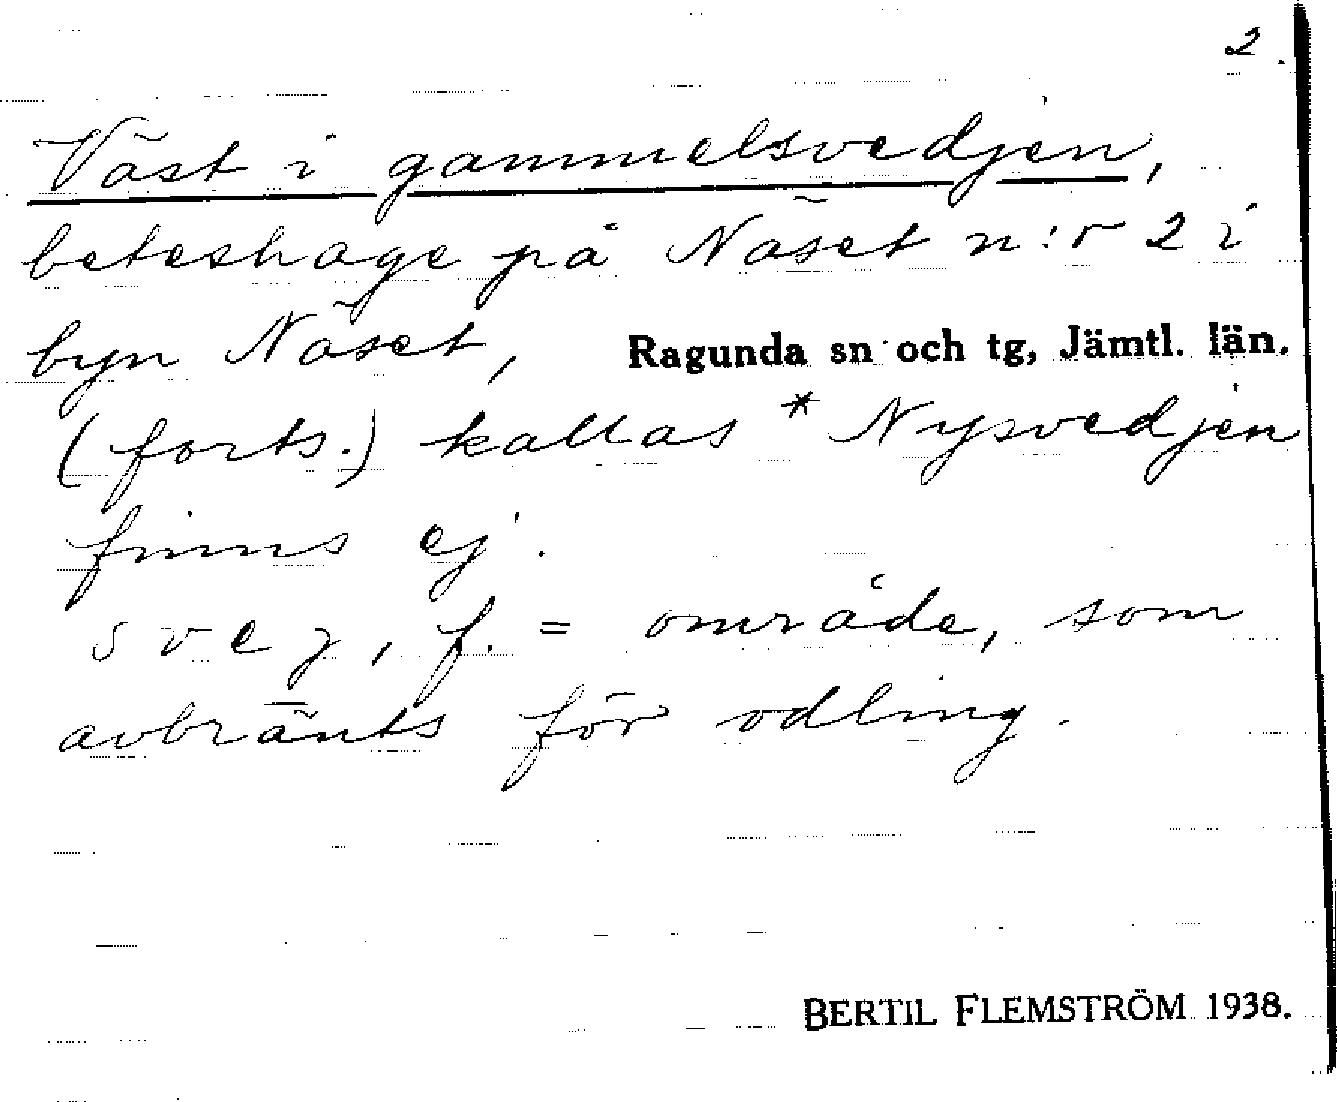 2.
Väst i gammelsvedjen,
beteshage på Näset n:r 2 i
byn Näset, Ragunda sn och tg, Jämtl. län.
(forts.) kallas * Nysvedjen
finns ej.
sveȷ, f. = område, som
avbränts för odling.
BERTIL FLEMSTRÖM 1938.